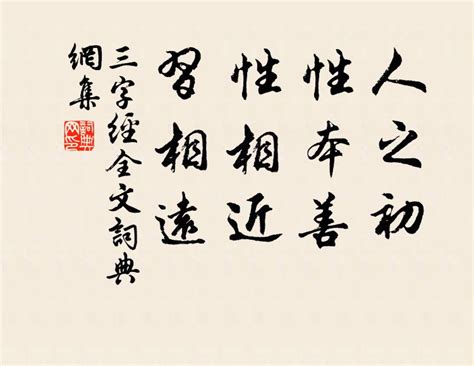 人之初
性本善
性相近
習相遠
三字經全文詞典
網集
詞典
网印